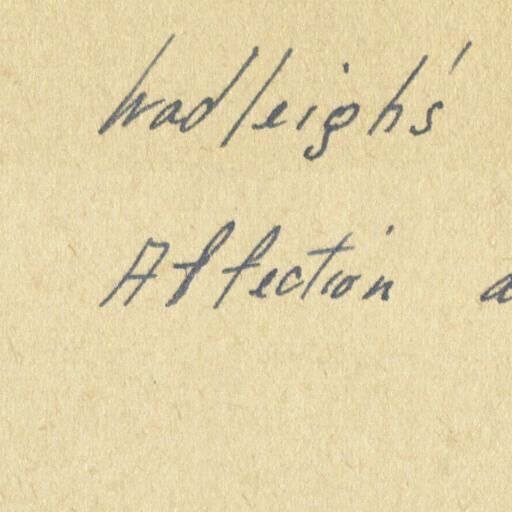 Wadleigh's
Affection a